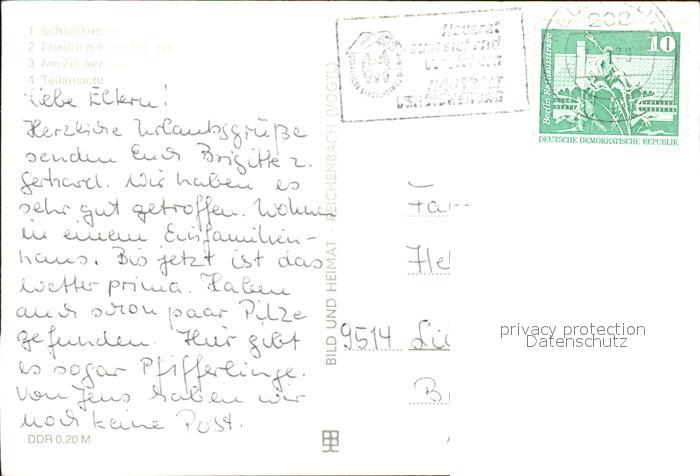 1 Schloßkirche
2 Friedrich-
3 Am Zie
4 Teilansicht
Liebe Eltern!
Herzliche Urlaubsgrüße
senden Euch Brigitte u.
Gerhard. Wir haben es
sehr gut getroffen. Wohnen
in einem Einfamilien-
haus. Bis jetzt ist das
Wetter prima. Haben
auch schon paar Pilze
gefunden. Hier gibt
es sogar Pfifferlinge.
Von Jens haben wir
noch keine Post.
DDR 0,20 M
BILD UND HEIMAT · REICHENBACH (VOGTL)
Hausrat
ausreichend
versichern
VERSICHERUNG
Berlin-Rathausstraße
10
DEUTSCHE DEMOKRATISCHE REPUBLIK
Fam
9514
privacy protection
Datenschutz